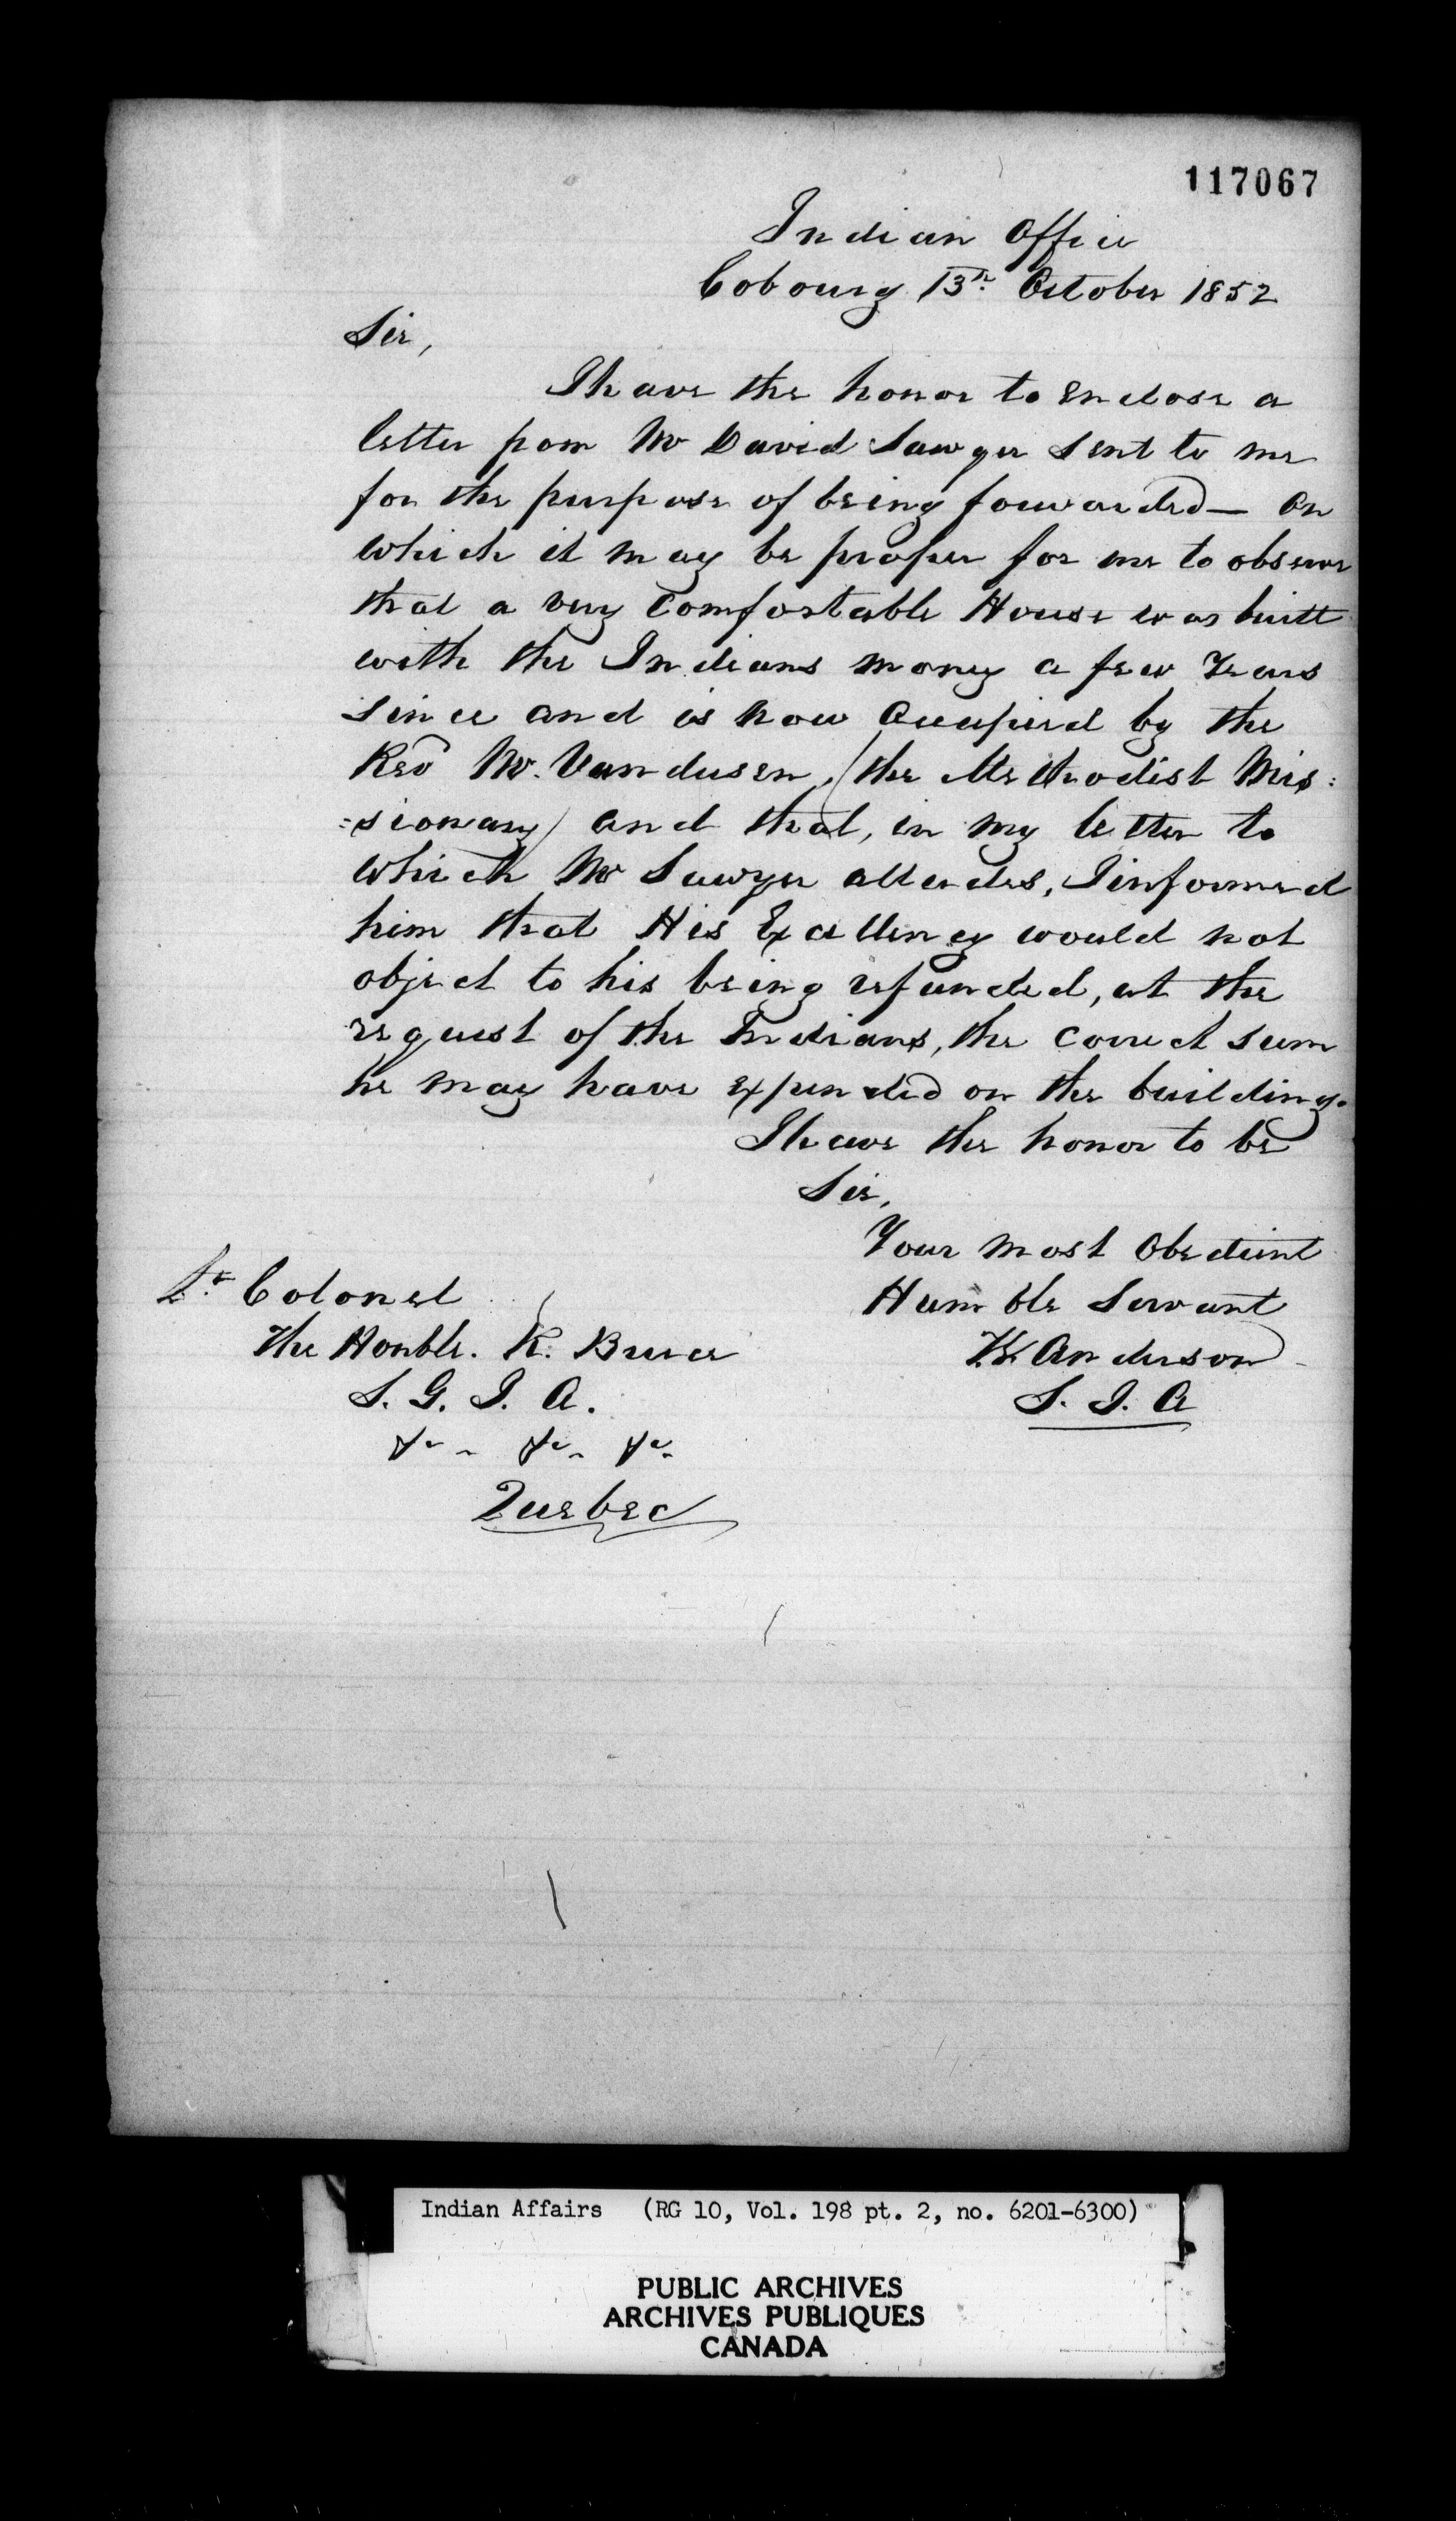 117067
Indian Office
Cobourg 13th. October 1852
Sir,
I have the honor to enclose a
letter from Mr David Sawyer sent to me
for the purpose of being forwarded — on
which it may be proper for me to observe
that a very comfortable House was built
with the Indians money a few years
since and is now occupied by the
Revd Mr. Vandusen, (the Methodist Mis:
:sionary) and that, in my letter to
which Mr Sawyer alludes, I informed
him that His Excellency would not
object to his being refunded, at the
request of the Indians, the correct sum
he may have expended on the building.
I have the honor to be
Sir,
Your most Obedient
Humble Servant
Anderson
S. I. A
Lt. Colonel
The Honble. R. Bruce
S. G. I. A.
&c. &c. &c.
Quebec
Indian Affairs (RG 10, Vol. 198 pt. 2, no. 6201-6300)
PUBLIC ARCHIVES
ARCHIVES PUBLIQUES
CANADA